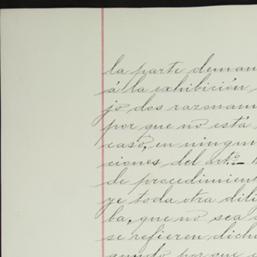 la parte deman
á la exhibicion
jo dos razonam
por que no está
caso, en ningun
ciones del artº
de procedimien
ye toda otra dili
ba, que no sea
se refieren dich